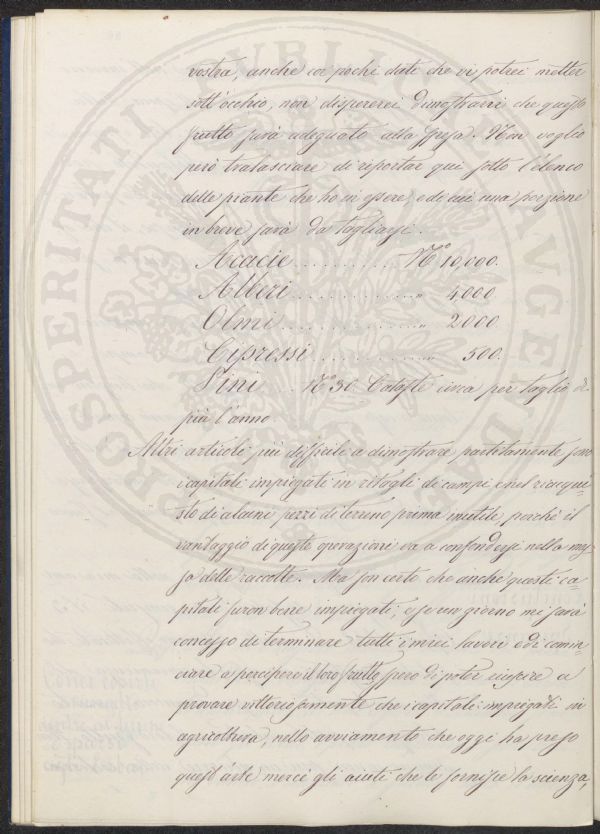 vostra, anche coi pochi dati che vi potrei metter
sott'occhio, non dispererei dimostrarvi che questo
frutto sarà adeguato alla spesa. Non voglio
però tralasciare di riportar qui sotto l'elenco
delle piante che ho in essere, e di cui una porzione
in breve sarà da tagliarsi.
Acacie . . . . . . . . . . . . N° 10,000.
Alberi . . . . . . . . . . . . „ 4000
Olmi . . . . . . . . . . . . „ 2000
Cipressi . . . . . . . . . . . . „ 500.
Pini . . N° 30 Cataste circa per taglio di
più l'anno.
Altri articoli più difficile a dimostrare partitamente sono
i capitali impiegati in ritagli di campi e nel riacqui-
sto di alcuni pezzi di terreno prima inutile, perchè il
vantaggio di queste operazioni va a confondersi nella mas-
sa delle raccolte. Ma son certo che anche questi ca
pitali furon bene impiegati, e se un giorno mi sarà
concesso di terminare tutti i miei lavori e di comin
ciare a percipere il loro frutto, spero di poter riuscire a
provare vittoriosamente che i capitali impiegati in
agricoltura, nello avviamento che oggi ha preso
quest'arte mercè gli aiuti che le fornisce la scienza,
PROSPERITATI PUBLICAE AUGENDAE